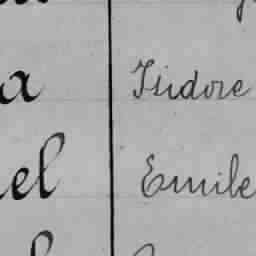 a Isidore
el Emile